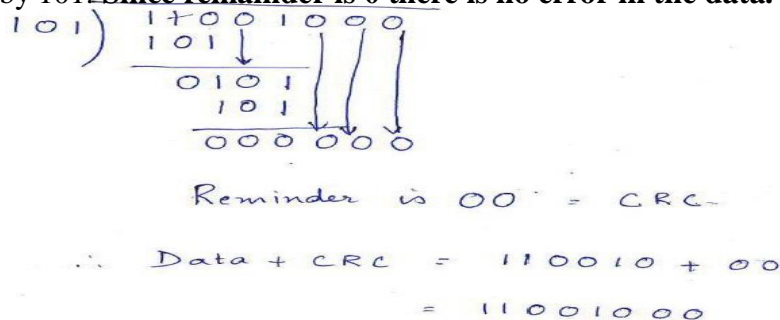 by 101. Since remainder is 0 there is no error in the data.
1 0 1 ) 1 1 0 0 1 0 0 0
1 0 1
0 1 0 1
1 0 1
0 0 0 0 0 0
Reminder is 00 = CRC
∴ Data + CRC = 110010 + 00
= 11001000